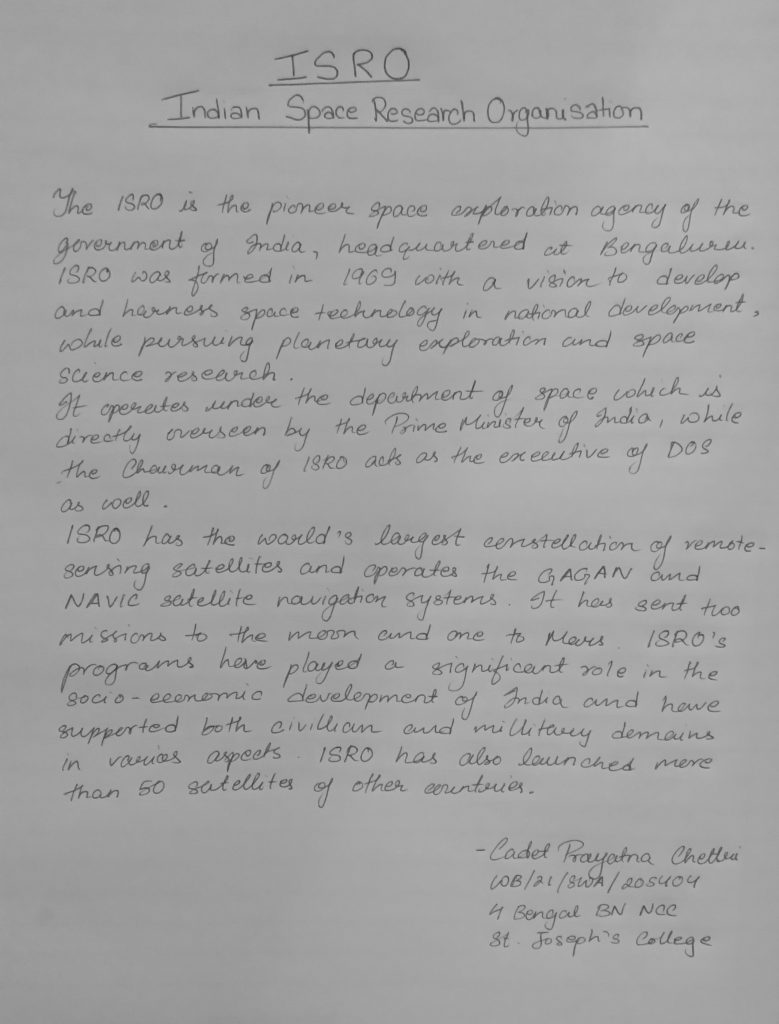 ISRO
Indian Space Research Organisation
The ISRO is the pioneer space exploration agency of the
government of India, headquartered at Bengaluru.
ISRO was formed in 1969 with a vision to develop
and harness space technology in national development,
while pursuing planetary exploration and space
science research.
It operates under the department of space which is
directly overseen by the Prime Minister of India, while
the Chairman of ISRO acts as the executive of DOS
as well.
ISRO has the world's largest constellation of remote-
sensing satellites and operates the GAGAN and
NAVIC satellite navigation systems. It has sent two
missions to the moon and one to Mars. ISRO's
programs have played a significant role in the
socio-economic development of India and have
supported both civillian and millitary domains
in varios aspects. ISRO has also launched more
than 50 satellites of other countries.
- Cadet Prayatna Chettri
WB/21/SWA/205404
4 Bengal BN NCC
St. Joseph's College